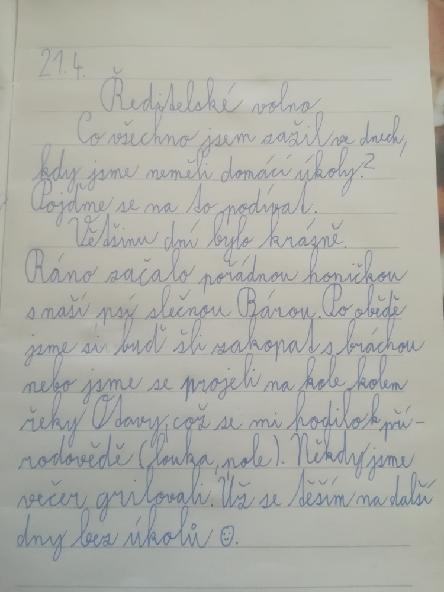 21.4.
Ředitelské volno
Co všechno jsem zažil ve dnech,
kdy jsme neměli domácí úkoly?
Pojďme se na to podívat.
Většinu dní bylo krásně.
Ráno začalo pořádnou honičkou
s naší psý slečnou Bárou. Po obědě
jsme si buď šli zakopat s bráchou
nebo jsme se projeli na kole kolem
řeky Otavy, což se mi hodilo k pří-
rodovědě (louka, pole). Někdy jsme
večer grilovali. Už se těším na další
dny bez úkolů ☺.